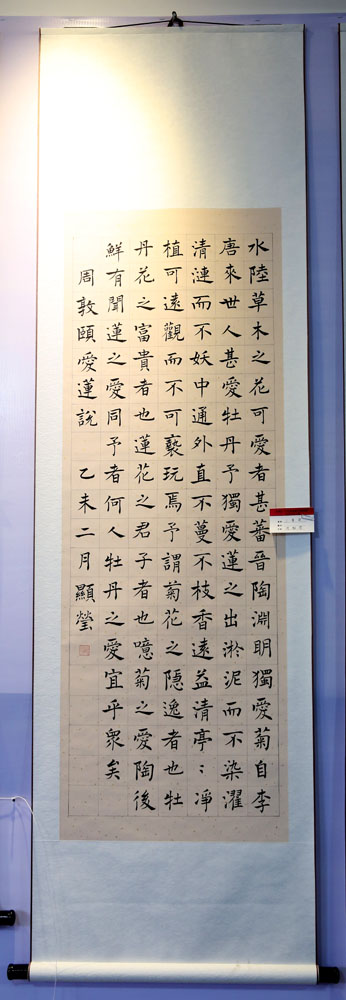 水陸草木之花可愛者甚蕃晉陶淵明獨愛菊自李
唐來世人甚愛牡丹予獨愛蓮之出淤泥而不染濯
清漣而不妖中通外直不蔓不枝香遠益清亭〻淨
植可遠觀而不可褻玩焉予謂菊花之隱逸者也牡
丹花之富貴者也蓮花之君子者也噫菊之愛陶後
鮮有聞蓮之愛同予者何人牡丹之愛宜乎衆矣
周敦頤愛蓮說 乙未二月顯瑩